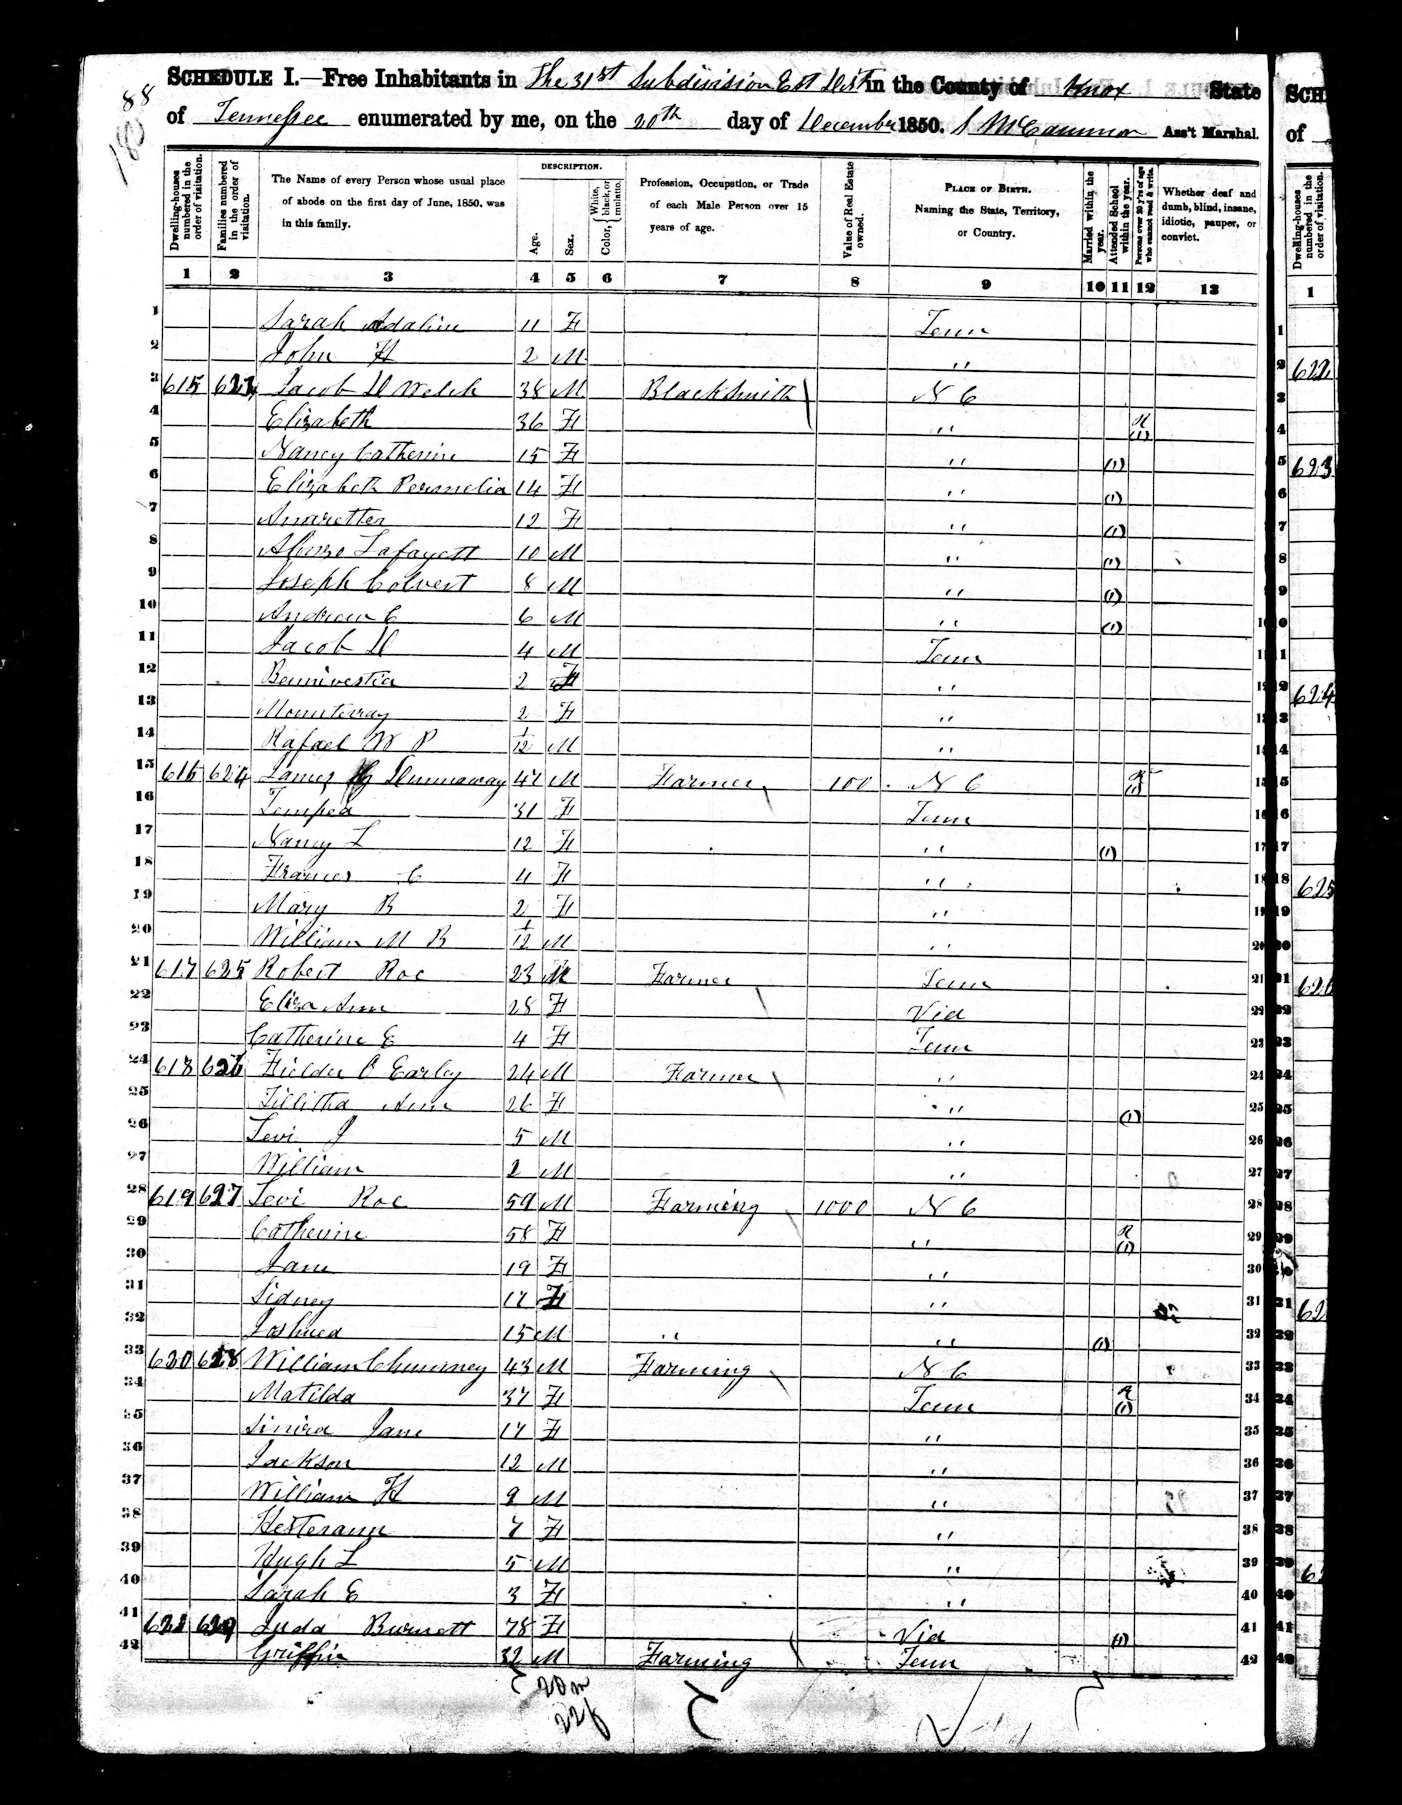 188
88
SCHEDULE I.—Free Inhabitants in The 31st Subdivision Est Dist in the County of Knox State
of Tennessee enumerated by me, on the 20th day of December 1850. S McCammon Ass't Marshal.
Dwelling-houses numbered in the order of visitation.
Families numbered in the order of visitation.
The Name of every Person whose usual place of abode on the first day of June, 1850, was in this family.
DESCRIPTION.
Age.
Sex.
Color, { White, black, or mulatto.
Profession, Occupation, or Trade of each Male Person over 15 years of age.
Value of Real Estate owned.
PLACE OF BIRTH. Naming the State, Territory, or Country.
Married within the year.
Attended School within the year.
Persons over 20 y'rs of age who cannot read & write.
Whether deaf and dumb, blind, insane, idiotic, pauper, or convict.
1 2 3 4 5 6 7 8 9 10 11 12 13
1 Sarah Adaline 11 F Tenn 1
2 John H 2 M " 2
3 615 623 Jacob D Welch 38 M Blacksmith N C 3
4 Elizabeth 36 F " R (1) 4
5 Nancy Catherine 15 F " (1) 5
6 Elizabeth Permelia 14 F " (1) 6
7 Amaretter 12 F " (1) 7
8 Alonzo Lafayett 10 M " (1) 8
9 Joseph Colvert 8 M " (1) 9
10 Andrew C 6 M " (1) 10
11 Jacob D 4 M Tenn 11
12 Bennivestia 2 F " 12
13 Mounteray 2 F " 13
14 Rafael W P 1/12 M " 14
15 616 624 James G Dunnaway 47 M Farmer 100 N C R (1) 15
16 Tempea 31 F Tenn 16
17 Nancy L 12 F " (1) 17
18 Frances C 4 F " 18
19 Mary B 2 F " 19
20 William M B 1/12 M " 20
21 617 625 Robert Roe 23 M Farmer Tenn 21
22 Eliza Ann 28 F Via 22
23 Catherine E 4 F Tenn 23
24 618 626 Fielder O Earley 24 M Farmer " 24
25 Tillitha Ann 26 F " (1) 25
26 Levi J 5 M " 26
27 William 2 M " 27
28 619 627 Levi Roe 59 M Farming 1000 N C 28
29 Catherine 58 F " R (1) 29
30 Jane 19 F " 30
31 Sidney 17 F " 31
32 Joshuea 15 M " " (1) 32
33 620 628 William Chumney 43 M Farming N C 33
34 Matilda 37 F Tenn R (1) 34
35 Sinira Jane 17 F " 35
36 Jackson 12 M " 36
37 William H 9 M " 37
38 Hesterann 7 F " 38
39 Hugh L 5 M " 39
40 Sarah E 3 F " 40
41 621 629 Juda Burnett 78 F Via (1) 41
42 Griffin 32 M Farming Tenn 42
20 m
22 f
SCH
of
Dwelling-houses numbered in the order of visitation.
1
622
623
624
625
626